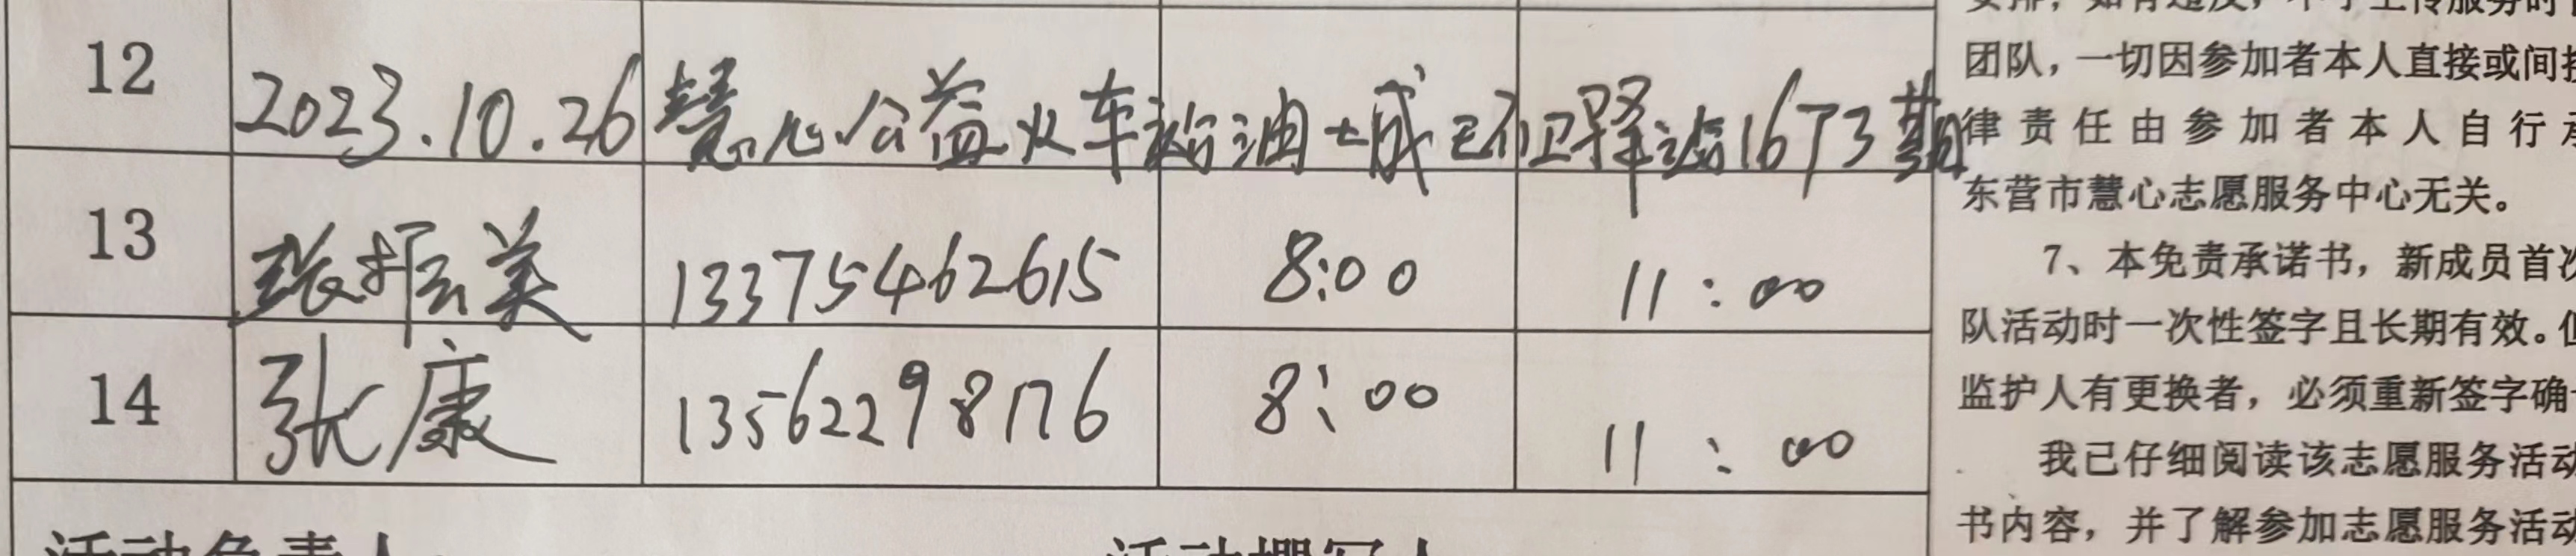 12 2023.10.26 慧心公益火车站油城环卫驿站1673期
13 张振美 13375462615 8:00 11:00
14 张康 13562298176 8:00 11:00
团队，一切因参加者本人直接或间接
律责任由参加者本人自行承
东营市慧心志愿服务中心无关。
7、本免责承诺书，新成员首次
队活动时一次性签字且长期有效。但
监护人有更换者，必须重新签字确
我已仔细阅读该志愿服务活动
书内容，并了解参加志愿服务活动